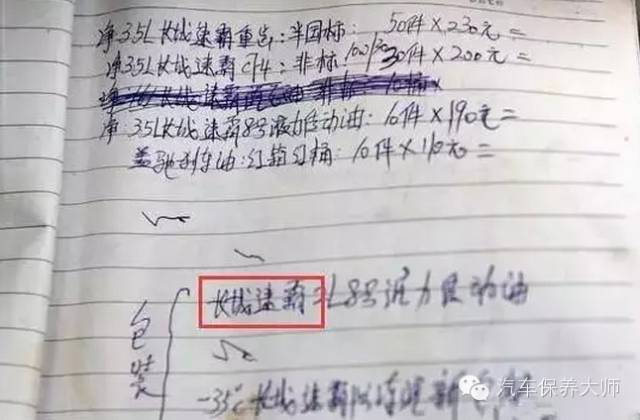 净3.5L长城速霸重齿:半国标: 50件×230元=
净3.5L长城速霸CH4:非标: 30件×200元=
净3.5L长城速霸8号液力传动油: 10件×190元=
盖驰刹车油:红箱红桶: 10件×110元=
包装
长城速霸 L8号液力传动油
-35℃长城速霸
汽车保养大师